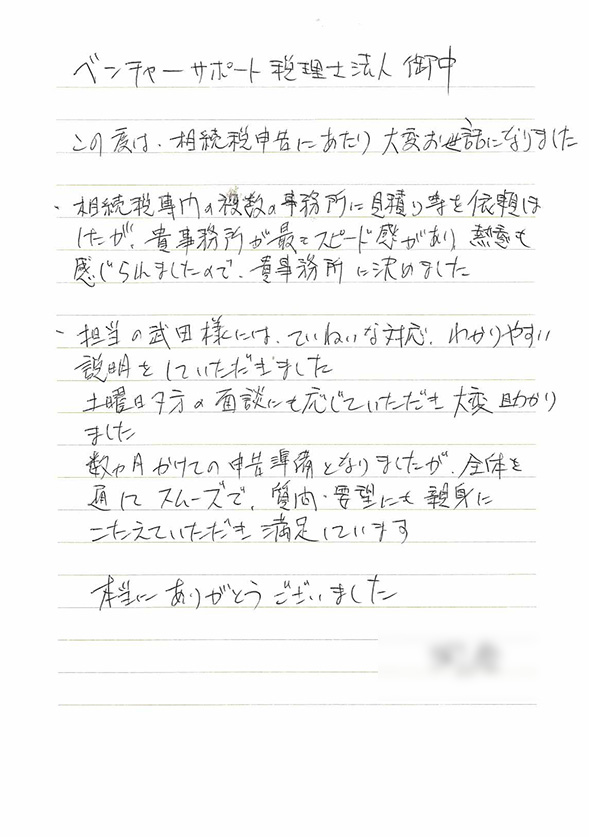 ベンチャーサポート税理士法人 御中
この度は、相続税申告にあたり 大変お世話になりました
・相続税専門の複数の事務所に見積り等を依頼しま
したが、貴事務所が最もスピード感があり 熱意も
感じられましたので、貴事務所に決めました
・担当の武田様には、ていねいな対応、わかりやすい
説明をしていただきました
土曜日夕方の面談にも応じていただき 大変 助かり
ました
数ヵ月かけての申告準備となりましたが、全体を
通して スムーズで、質問・要望にも 親身に
こたえていただき 満足しています
本当に ありがとう ございました